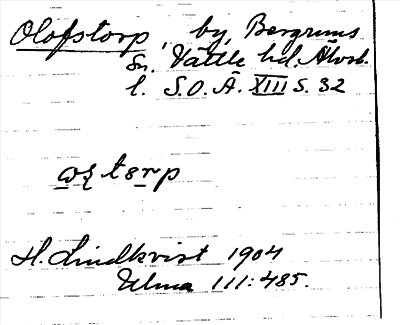 Olofstorp, by, Bergums
Sn. Vättle hd. Älvsb.
l. S.O.Ä. XIII s. 32
torp
H. Lindkvist 1904
Ulma 111:485.